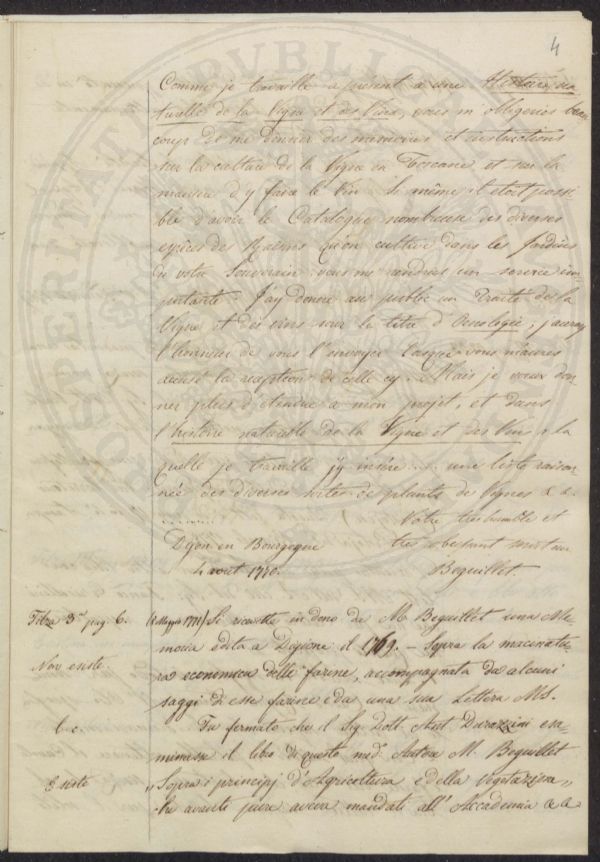 4
Comme je travaille a présent a une Histoire na
turelle de la Vigne et des Vins, vous m'obligeries beau
coup de me donner des memoires et instructions
sur la culture de la Vigne en Toscane et sur la
maniere d'y faire le Vin. Si même il etoit possi
ble d'avoir le Catalogue nombreuse des diverses
espèces des Raisins qu'on cultive dans les Jardins
de votre Souverain vous me randries un service im
portante. J'ay donné au public un Traité de la
Vigne et des vins sour le titre d'Oenologie; j'auray
l'honneur de vous l'envoyer lasque vous m'aures
accusé la reception de celle cy. Mais je veux don
ner plus d'etendue a mon projet, et dans
l'histoire naturelle de la Vigne et des Vins a la
quelle je travaille j'y insere .... une liste raison
née des diverses sortes de plants de Vignes &. &.
........ Votre tres humble et
Dijon en Bourgogne tres obeisant serviteur
4 aout 1770. Beguillet.
Filza 3a. pag. 6. (8 Maggio 1771) Si ricevette in dono da M. Beguillet una Me-
moria edita a Digione il 1769. - Sopra la macinatu
Non esiste. ra economica delle farine, accompagnata da alcuni
saggi di esse farine e da una sua Lettera MS.
b. c. Fu fermato che il Sig. Dott. Ant. Durazzini esa
minasse il libro di questo med. Autore M. Beguillet
Esiste "Sopra i principj d'Agricoltura e della Vegetazione"
che avante pure aveva mandati all'Accademia & &